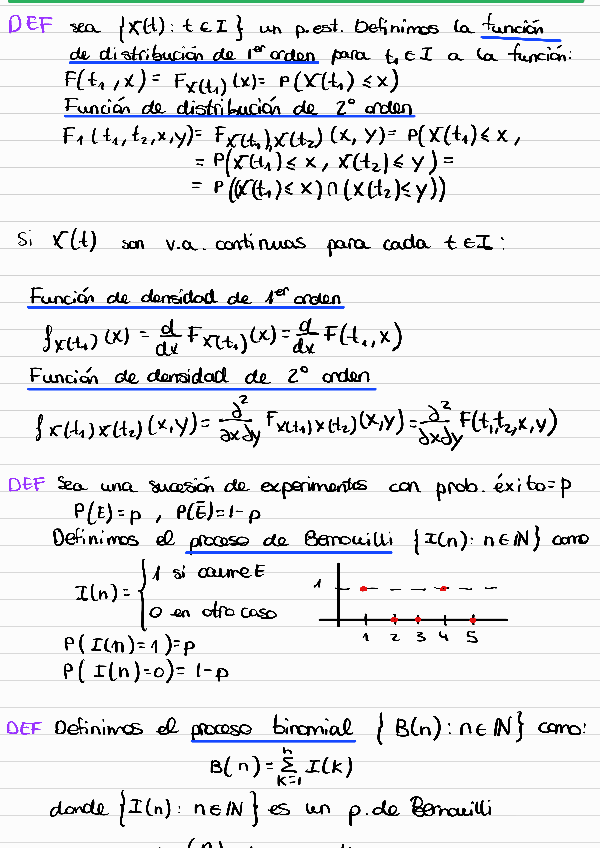 DEF sea {X(t): t ∈ I} un p.est. Definimos la función
de distribución de 1er orden para t₁ ∈ I a la función:
F(t₁, x) = F_X(t₁) (x) = P(X(t₁) ≤ x)
Función de distribución de 2º orden
F₁(t₁, t₂, x, y) = F_X(t₁),X(t₂) (x, y) = P(X(t₁) ≤ x,
= P(X(t₁) ≤ x, X(t₂) ≤ y) =
= P((X(t₁) ≤ x) ∩ (X(t₂) ≤ y))
Si X(t) son v.a. continuas para cada t ∈ I:
Función de densidad de 1er orden
f_X(t₁) (x) = d/dx F_X(t₁) (x) = d/dx F(t₁, x)
Función de densidad de 2º orden
f_X(t₁)X(t₂) (x,y) = ∂²/∂x∂y F_X(t₁)X(t₂) (x,y) = ∂²/∂x∂y F(t₁,t₂,x,y)
DEF Sea una sucesión de experimentos con prob. éxito = p
P(E) = p , P(Ē) = 1-p
Definimos el proceso de Bernouilli {I(n): n ∈ ℕ} como
I(n) = { 1 si ocurre E
0 en otro caso
1
1 2 3 4 5
P(I(n)=1) = p
P(I(n)=0) = 1-p
DEF Definimos el proceso binomial {B(n): n ∈ ℕ} como:
B(n) = Σ_{k=1}^{n} I(k)
donde {I(n): n ∈ ℕ} es un p. de Bernouilli